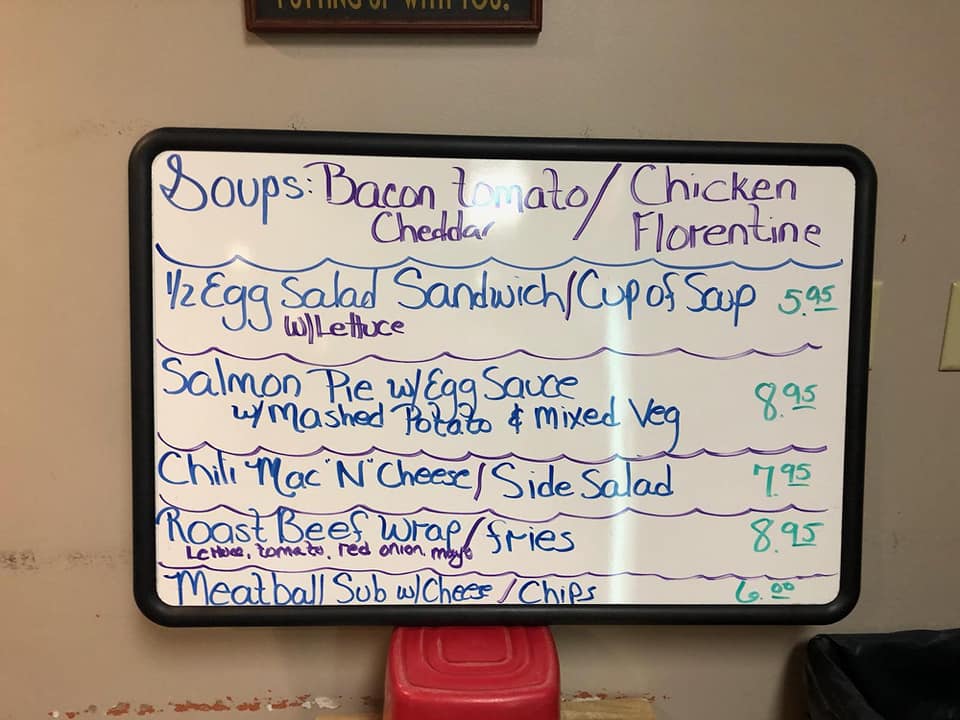 PUTTING UP WITH YOU.
Soups: Bacon tomato / Chicken
Cheddar Florentine
1/2 Egg Salad Sandwich/Cup of Soup 5.95
w/Lettuce
Salmon Pie w/Egg Sauce
w/Mashed Potato & Mixed Veg 8.95
Chili Mac "N" Cheese/Side Salad 7.95
Roast Beef Wrap/fries 8.95
Lettuce, tomato, red onion, mayo
Meatball Sub w/Cheese / Chips 6.00